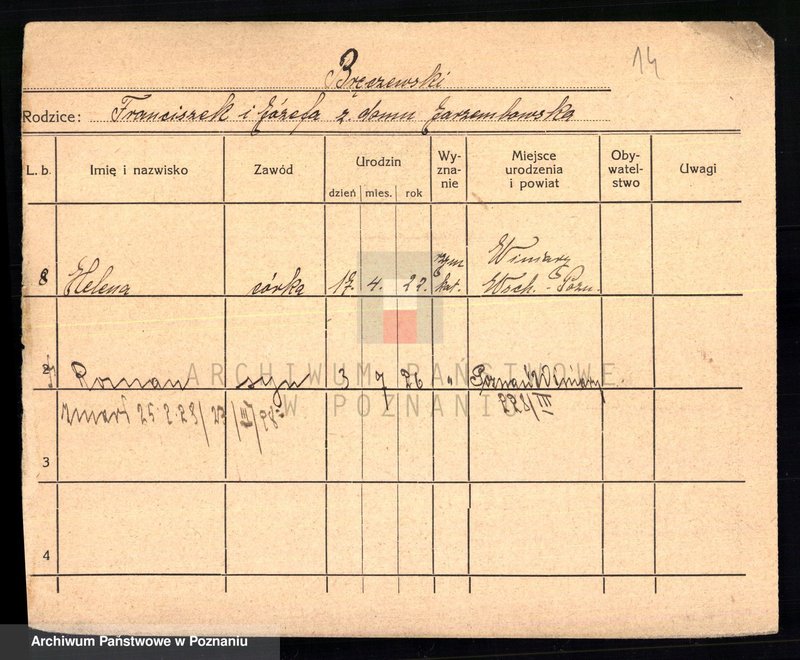 14
Bręczewski
Rodzice: Franciszek i Józefa z domu Jarzembowska
L. b. Imię i nazwisko Zawód Urodzin dzień mies. rok Wy-zna-nie Miejsce urodzenia i powiat Oby-watel-stwo Uwagi
8 Helena córka 17. 4. 22. rzym kat. Winiary Wsch. - Pozn.
Roman syn 3 7 26 " Poznań Winiary
zmarł 25.2.28/ 27/III/28. 228/III
3
4
ARCHIWUM PAŃSTWOWE
W POZNANIU
Archiwum Państwowe w Poznaniu